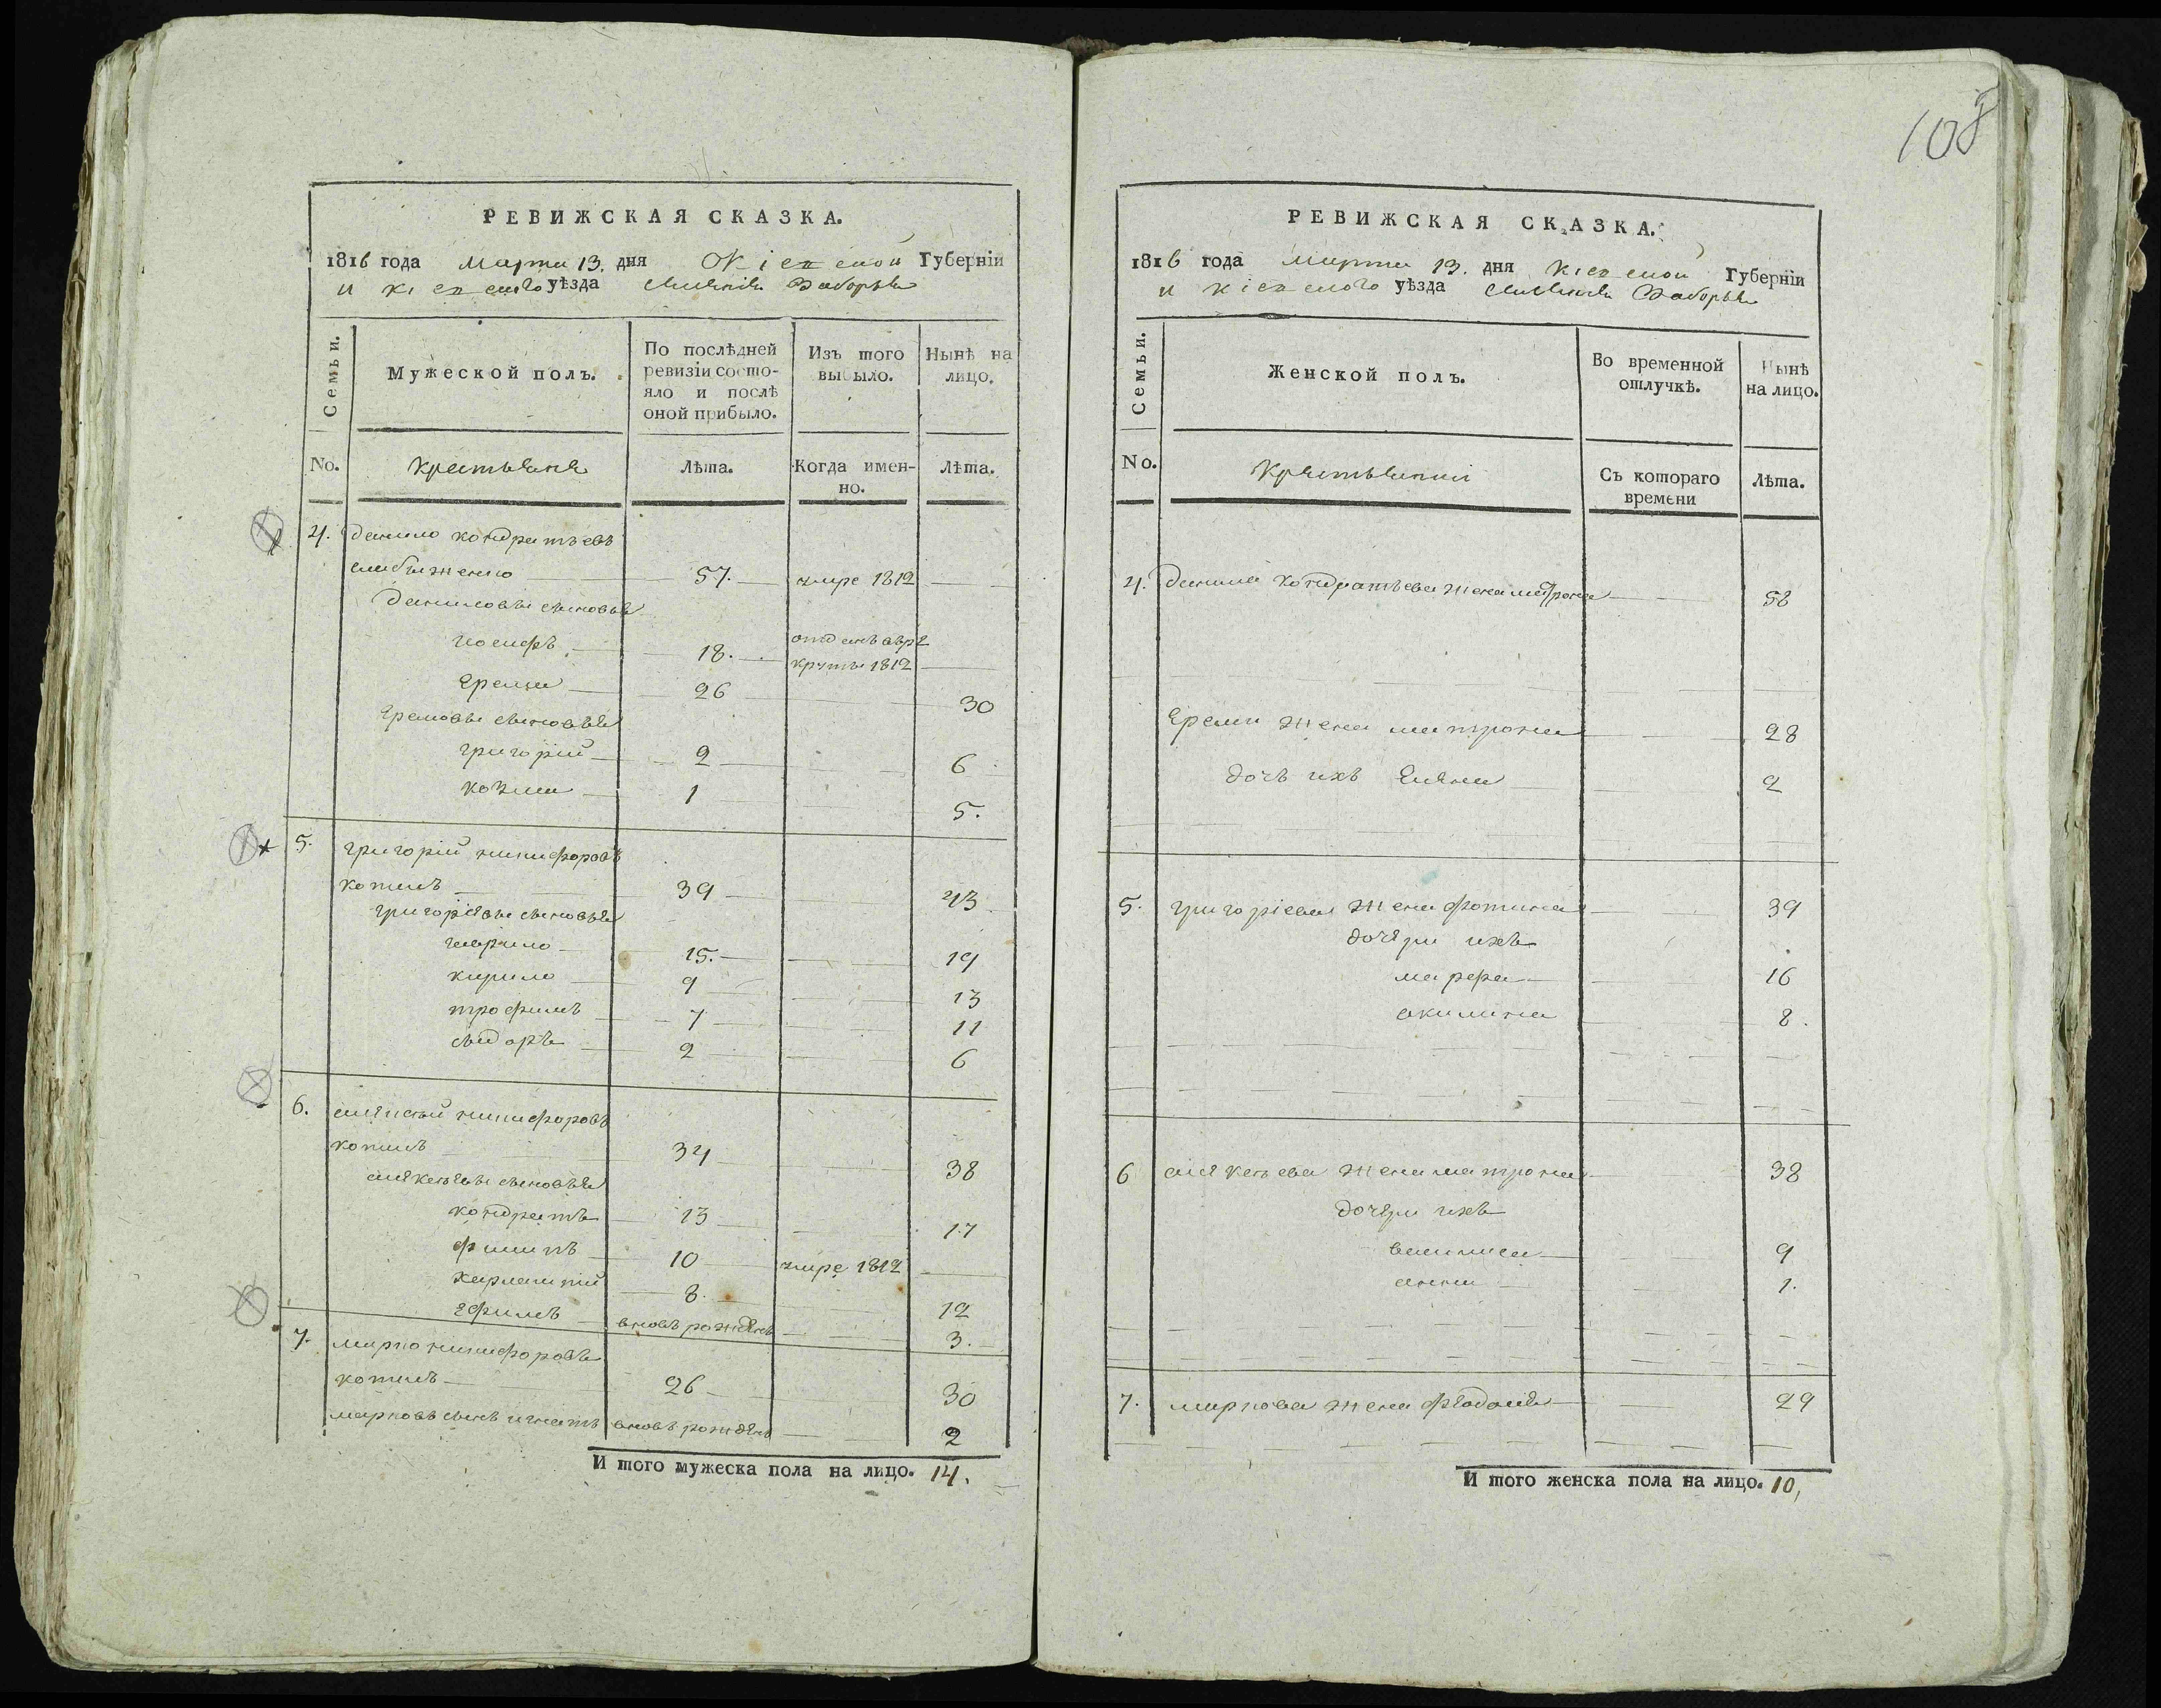 108
РЕВИЖСКАЯ СКАЗКА.
1816 года Марта 13. дня Кіевской Губерніи
и кіевского уѣзда селенія Заборья
Семьи.
Мужеской полъ.
По послѣдней ревизіи состо-
яло и послѣ
оной прибыло.
Изъ того
выбыло.
Нынѣ на
лицо.
No.
крестьяне
Лѣта.
Когда имен-
но.
Лѣта.
4. данило кондратьевъ
57. умре 1812
даниловы сыновья
иосифъ 18. отданъ в
рекруты 1812
Ерема 26 30
Еремовы сыновья
григорій 2 6
козма 1 5.
5. григорій никифоровъ
котъ 39 43
григорієвы сыновья
гаврило 15. 19
кирило 9 13
трофимъ 7 11
сидоръ 2 6
6. алексѣй никифоровъ
34 38
алексѣевы сыновья
кондратъ 13 17
филипъ 10 умре 1812
харлампій 8. 12
Ефимъ вновь рожденъ 3.
7. марко никифоровъ
26 30
марковъ сынъ игнатъ вновь рожденъ 2
И того мужеска пола на лицо. 14.
РЕВИЖСКАЯ СКАЗКА.
1816 года Марта 13. дня кіевской Губерніи
и кіевского уѣзда селенія Заборья
Семьи.
Женской полъ.
Во временной
отлучкѣ.
Нынѣ
на лицо.
No.
крестьянки
Съ котораго
времени
Лѣта.
4. данила кондратьева жена матрона 58
Еремы жена матрона 28
дочь ихъ Елена 2
5. григоріева жена фотина 39
дочери ихъ
марфа 16
акилина 8.
6 алексѣева жена матрона 38
дочери ихъ
василиса 9
анна 1.
7. маркова жена 29
И того женска пола на лицо. 10,